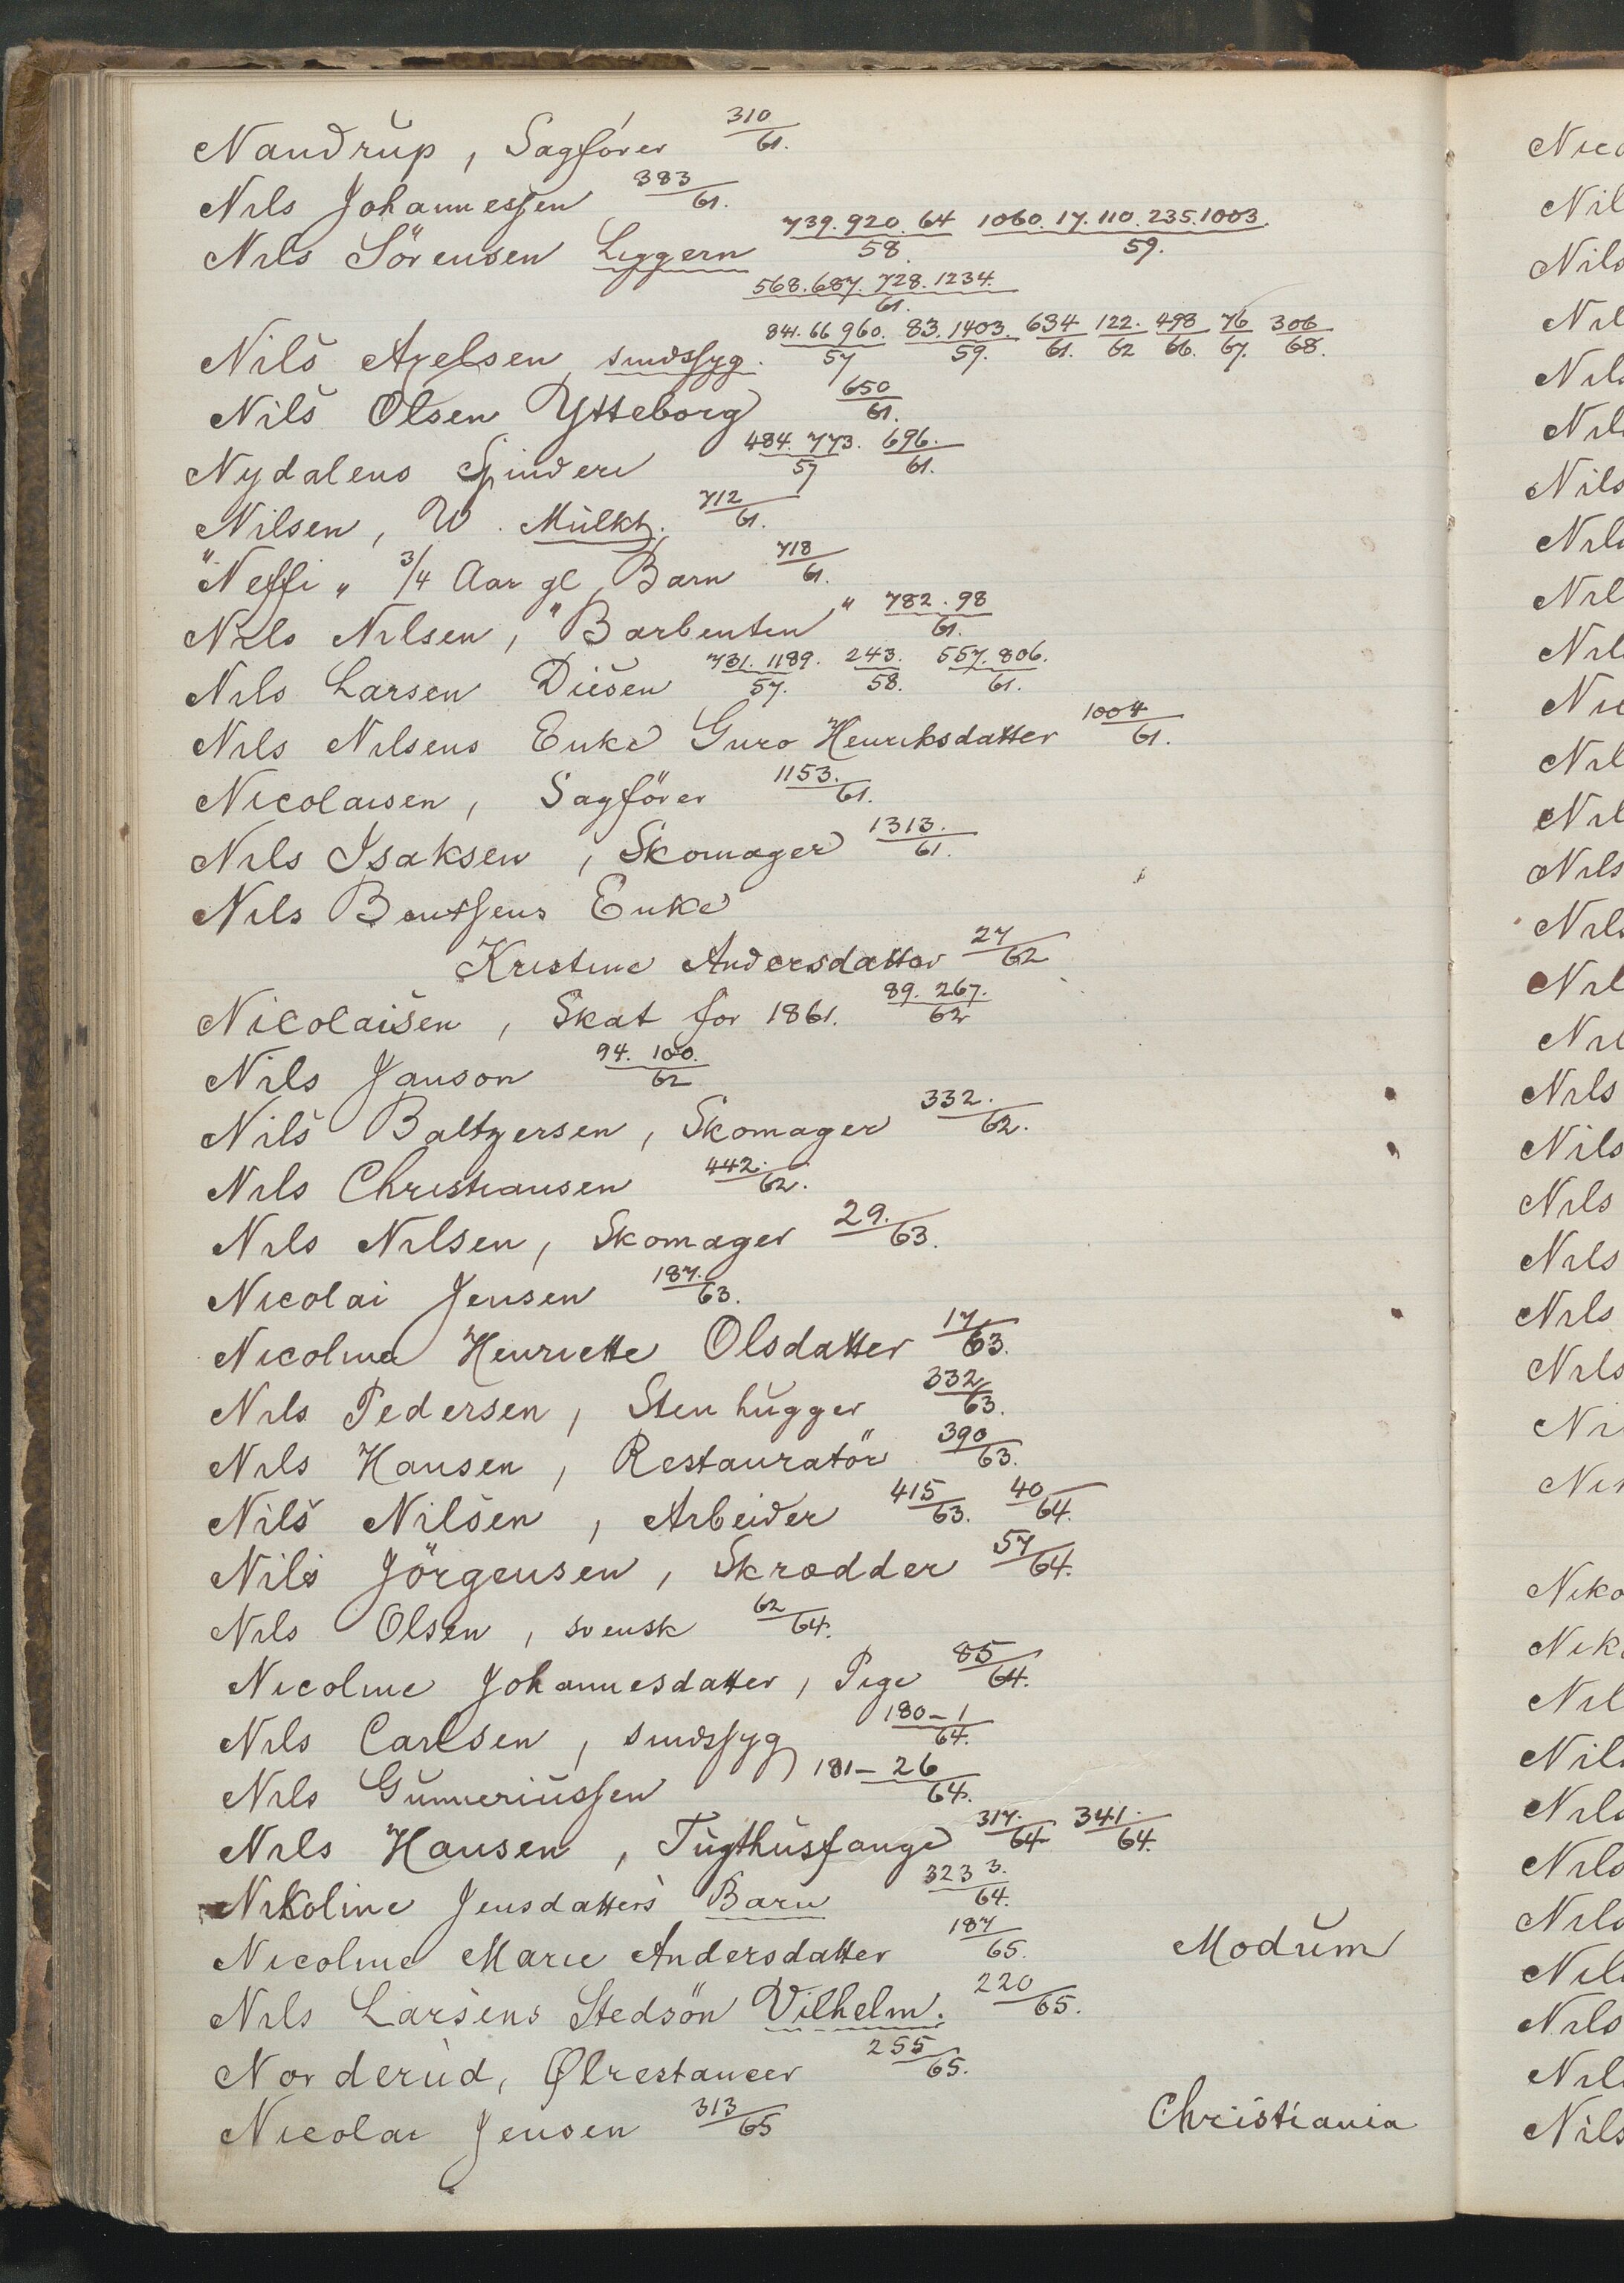 Naudrup, Sagförer 310/61.
Nils Johannessen 383/61.
Nils Sörensen Liggern 739.920.64/58. 1060.17.110.235.1003./59.
568.687.728.1234./61.
Nils Axelsen, sindssyg. 841.66 960./57 83.1403./59. 634/61. 122./62 498/66. 76/67. 306/68.
Nils Olsen Ytteborg 650/61.
Nydalens Spinderi 484.773./57 696./61.
Nilsen, W. Mulkt. 712/61.
"Neffi" 3/4 Aar gl. Barn 718/61.
Nils Nilsen, "Barbenten" 782.98/61.
Nils Larsen Diesen 731.1189./57. 243./58. 557.806./61.
Nils Nilsens Enke Guro Henriksdatter 1004/61.
Nicolaisen, Sagförer 1153./61.
Nils Isaksen, Skomager 1313./61.
Nils Bentsens Enke
Kristine Andersdatter 27/62
Nicolaisen, Skat for 1861. 89. 267./62
Nils Janson 94. 100./62
Nils Baltzersen, Skomager 332./62.
Nils Christiansen 442./62.
Nils Nilsen, Skomager 29./63.
Nicolai Jensen 187./63.
Nicolina Henriette Olsdatter 17/63.
Nils Pedersen, Stenhugger 332/63.
Nils Hansen, Restauratör 390/63.
Nils Nilsen, Arbeider 415/63. 40/64.
Nils Jörgensen, Skrædder 57/64.
Nils Olsen, svensk 62/64.
Nicoline Johannesdatter, Pige 85/64.
Nils Carlsen, sindssyg 180-1/64.
Nils Gunneriussen 181-26/64.
Nils Hansen, Tugthusfange 317./64 341./64.
Nikoline Jensdatters Barn 323 3./64.
Nicoline Marie Andersdatter 187/65. Modum
Nils Larsens Stedsön Vilhelm. 220/65.
Norderud, Ølrestancer 255/65.
Nicolai Jensen 313/65 Christiania